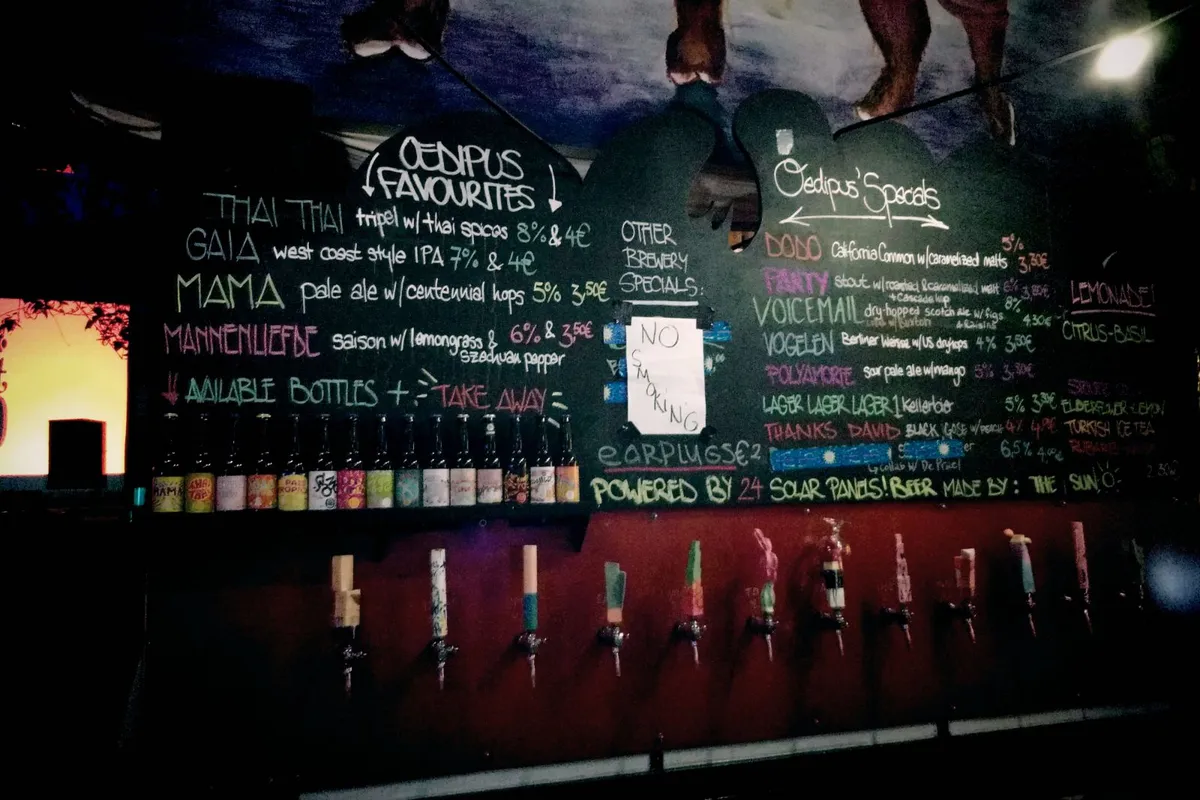 OEDIPUS
FAVOURITES
THAI THAI tripel w/ thai spices 8% & 4€
GAIA west coast style IPA 7% & 4€
MAMA pale ale w/ centennial hops 5% & 3,50€
MANNENLIEFDE saison w/ lemongrass & 6% & 3,50€
szechuan pepper
AVAILABLE BOTTLES + TAKE AWAY
MAMA
THAI THAI
OTHER
BREWERY
SPECIALS:
NO
SMOKING
EARPLUGS €2
Oedipus' Specials
DODO California Common w/ caramelized malts 5% 3,30€
PANTY stout w/ roasted & caramelized malt
+ Cascade hop
VOICEMAIL dry-hopped scotch ale w/ figs 8% 4,30€
& Raisins
VOGELEN Berliner Weisse w/ US dry hops 4% 3,50€
POLYAMORIE sour pale ale w/ mango 5%
LAGER LAGER LAGER] Kellerbier 5%
THANKS DAVID BLACK GOSE w/ 4%
er 6,5%
collab w/ De Prael
LEMONADE!
CITRUS-BASIL
ELDERFLOWER-LEMON
TURKISH ICE TEA
POWERED BY 24 SOLAR PANELS! BEER MADE BY: THE SUN